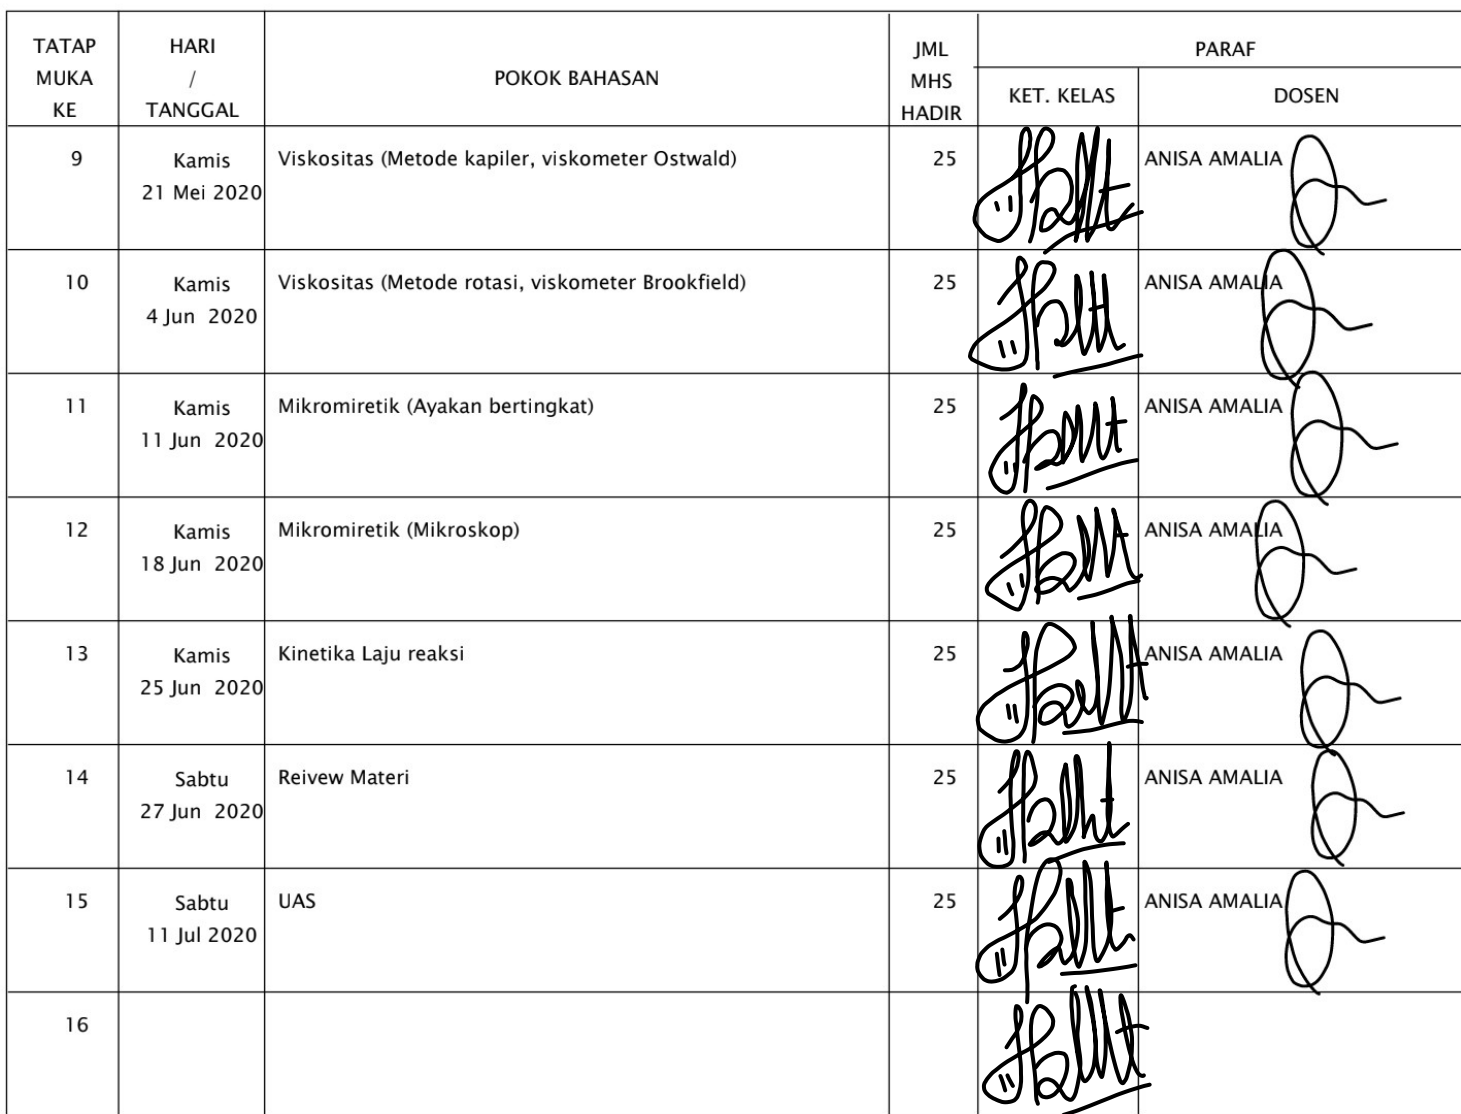 TATAP MUKA KE
HARI / TANGGAL
POKOK BAHASAN
JML MHS HADIR
PARAF
KET. KELAS
DOSEN
9
Kamis
21 Mei 2020
Viskositas (Metode kapiler, viskometer Ostwald)
25
ANISA AMALIA
10
Kamis
4 Jun 2020
Viskositas (Metode rotasi, viskometer Brookfield)
25
ANISA AMALIA
11
Kamis
11 Jun 2020
Mikromiretik (Ayakan bertingkat)
25
ANISA AMALIA
12
Kamis
18 Jun 2020
Mikromiretik (Mikroskop)
25
ANISA AMALIA
13
Kamis
25 Jun 2020
Kinetika Laju reaksi
25
ANISA AMALIA
14
Sabtu
27 Jun 2020
Reivew Materi
25
ANISA AMALIA
15
Sabtu
11 Jul 2020
UAS
25
ANISA AMALIA
16